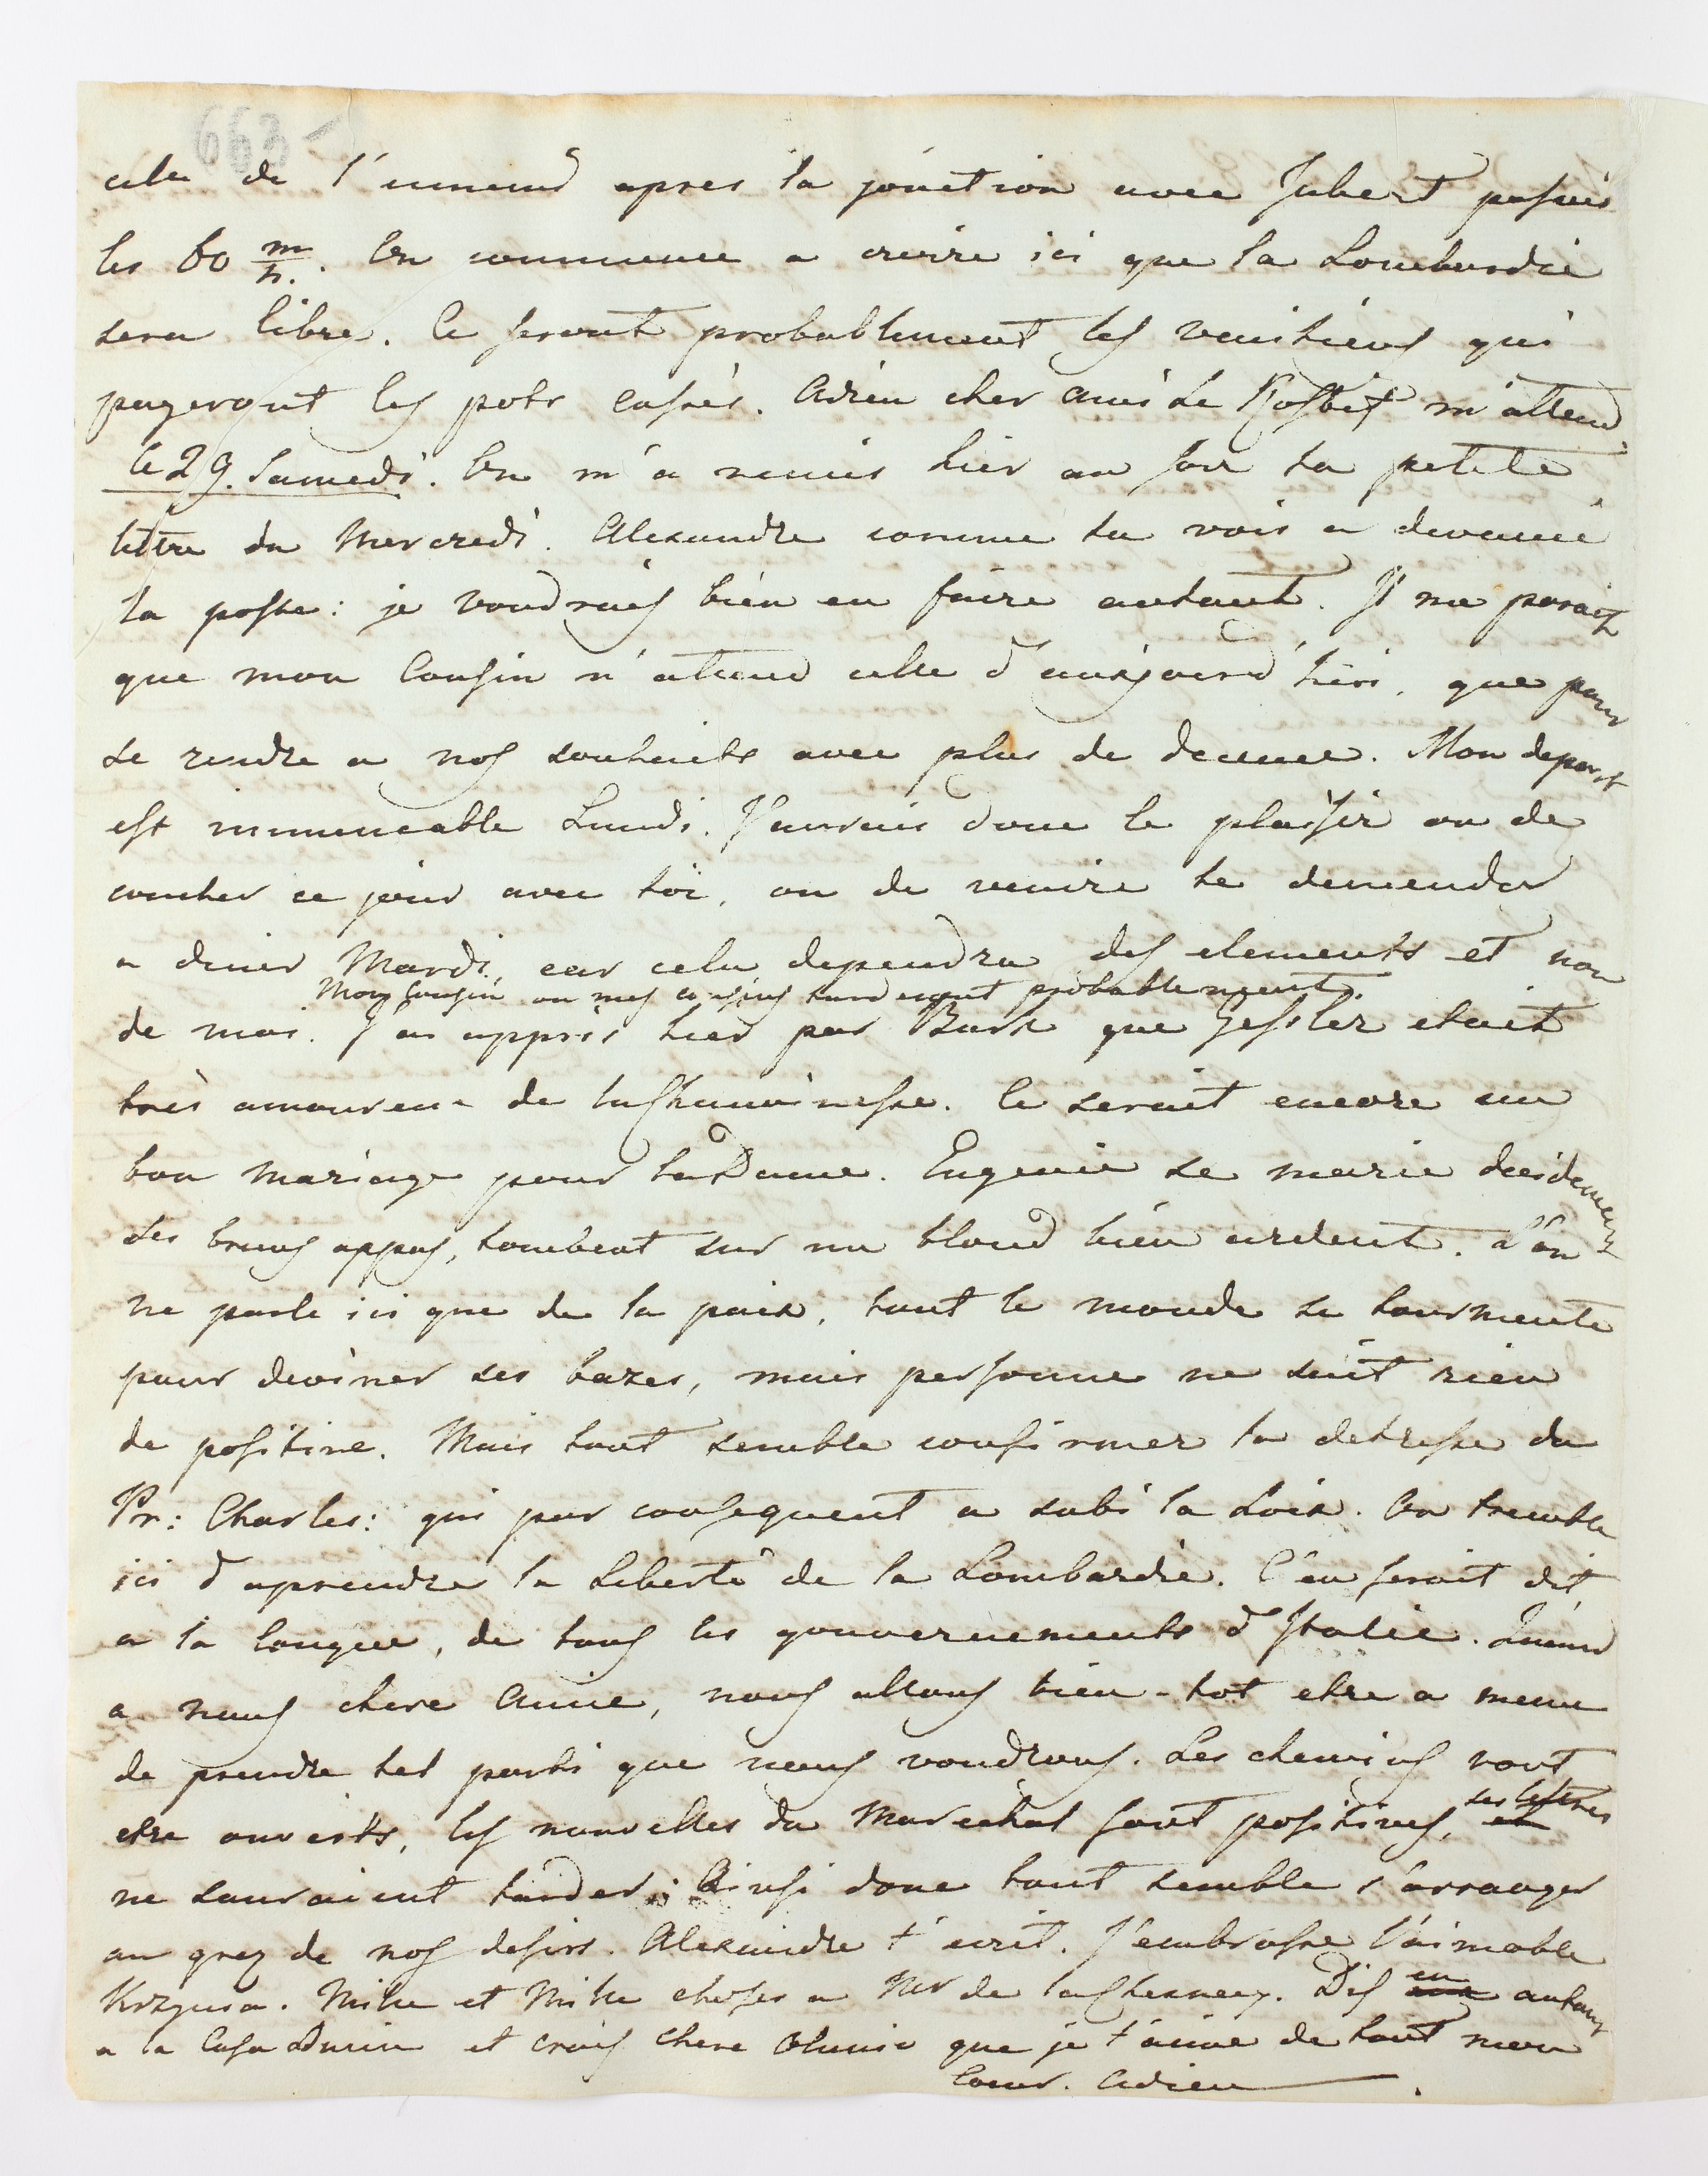 663 -
celle de l'ennemi apres la jonction avec Jubert passeé
les 60 m/h. On commence a croire ici que la Lombardie
sera libre. Ce seront probablement les venitiens qui
payeront les pots cassés. Adieu cher Ami Le Rosbif m'attend
le 29. Samedi. On m'a remis hier au soir ta petite
lettre du Mercredi. Alexandre comme tu vois a devancé
la poste: je voudrais bien en faire autant. Il me parait
que mon Cousin n'attend celle d'aujourd'hui, que pour
se rendre a nos souhaits avec plus de decence. Mon depart
est immencable Lundi. J'aurais donc le plaisir ou de
coucher ce jour avec toi, ou de venire te demender
a diner Mardi, car cela dependra des elements et non
Mon Cousin ou mes cousins tarderont probablement.
de moi. J'ai appris hier par Burk que Gessler etait
très amoureux de la Chanoinesse. Ce serait encore un
bon mariage pour la Dame. Eugenie se marie decidement
ses bruns appas, tombent sur un blond bien ardent. L'on
ne parle ici que de la paix, tout le monde se tourmente
pour deviner ses bazes, mais personne ne sait rien
de positive. Mais tout semble confirmer la detresse du
Pr: Charles: qui par consequent a subi la Loix. On tremble
ici d'aprendre la Liberté de la Lombardie. C'en serait dit,
a la longue, de tous les gouvernements d'Italie. Quand
a nous chere Amie, nous allons bien-tot etre a meme
de prendre tel parti que nous voudrons. Les chemins vont
etre ouverts, les nouvelles du Marechal sont positives, ses lettres
ne sauraient tarder; Ainsi donc tout semble s'arranger
au grez de nos desirs. Alexandre t'ecrit. J'embrasse l'aimable
Mille et Mille choses a Mr de la Chesnaey. Dis en autant
a la Casa et crois chere que je t'aime de tout mon
Coeur. Adieu.